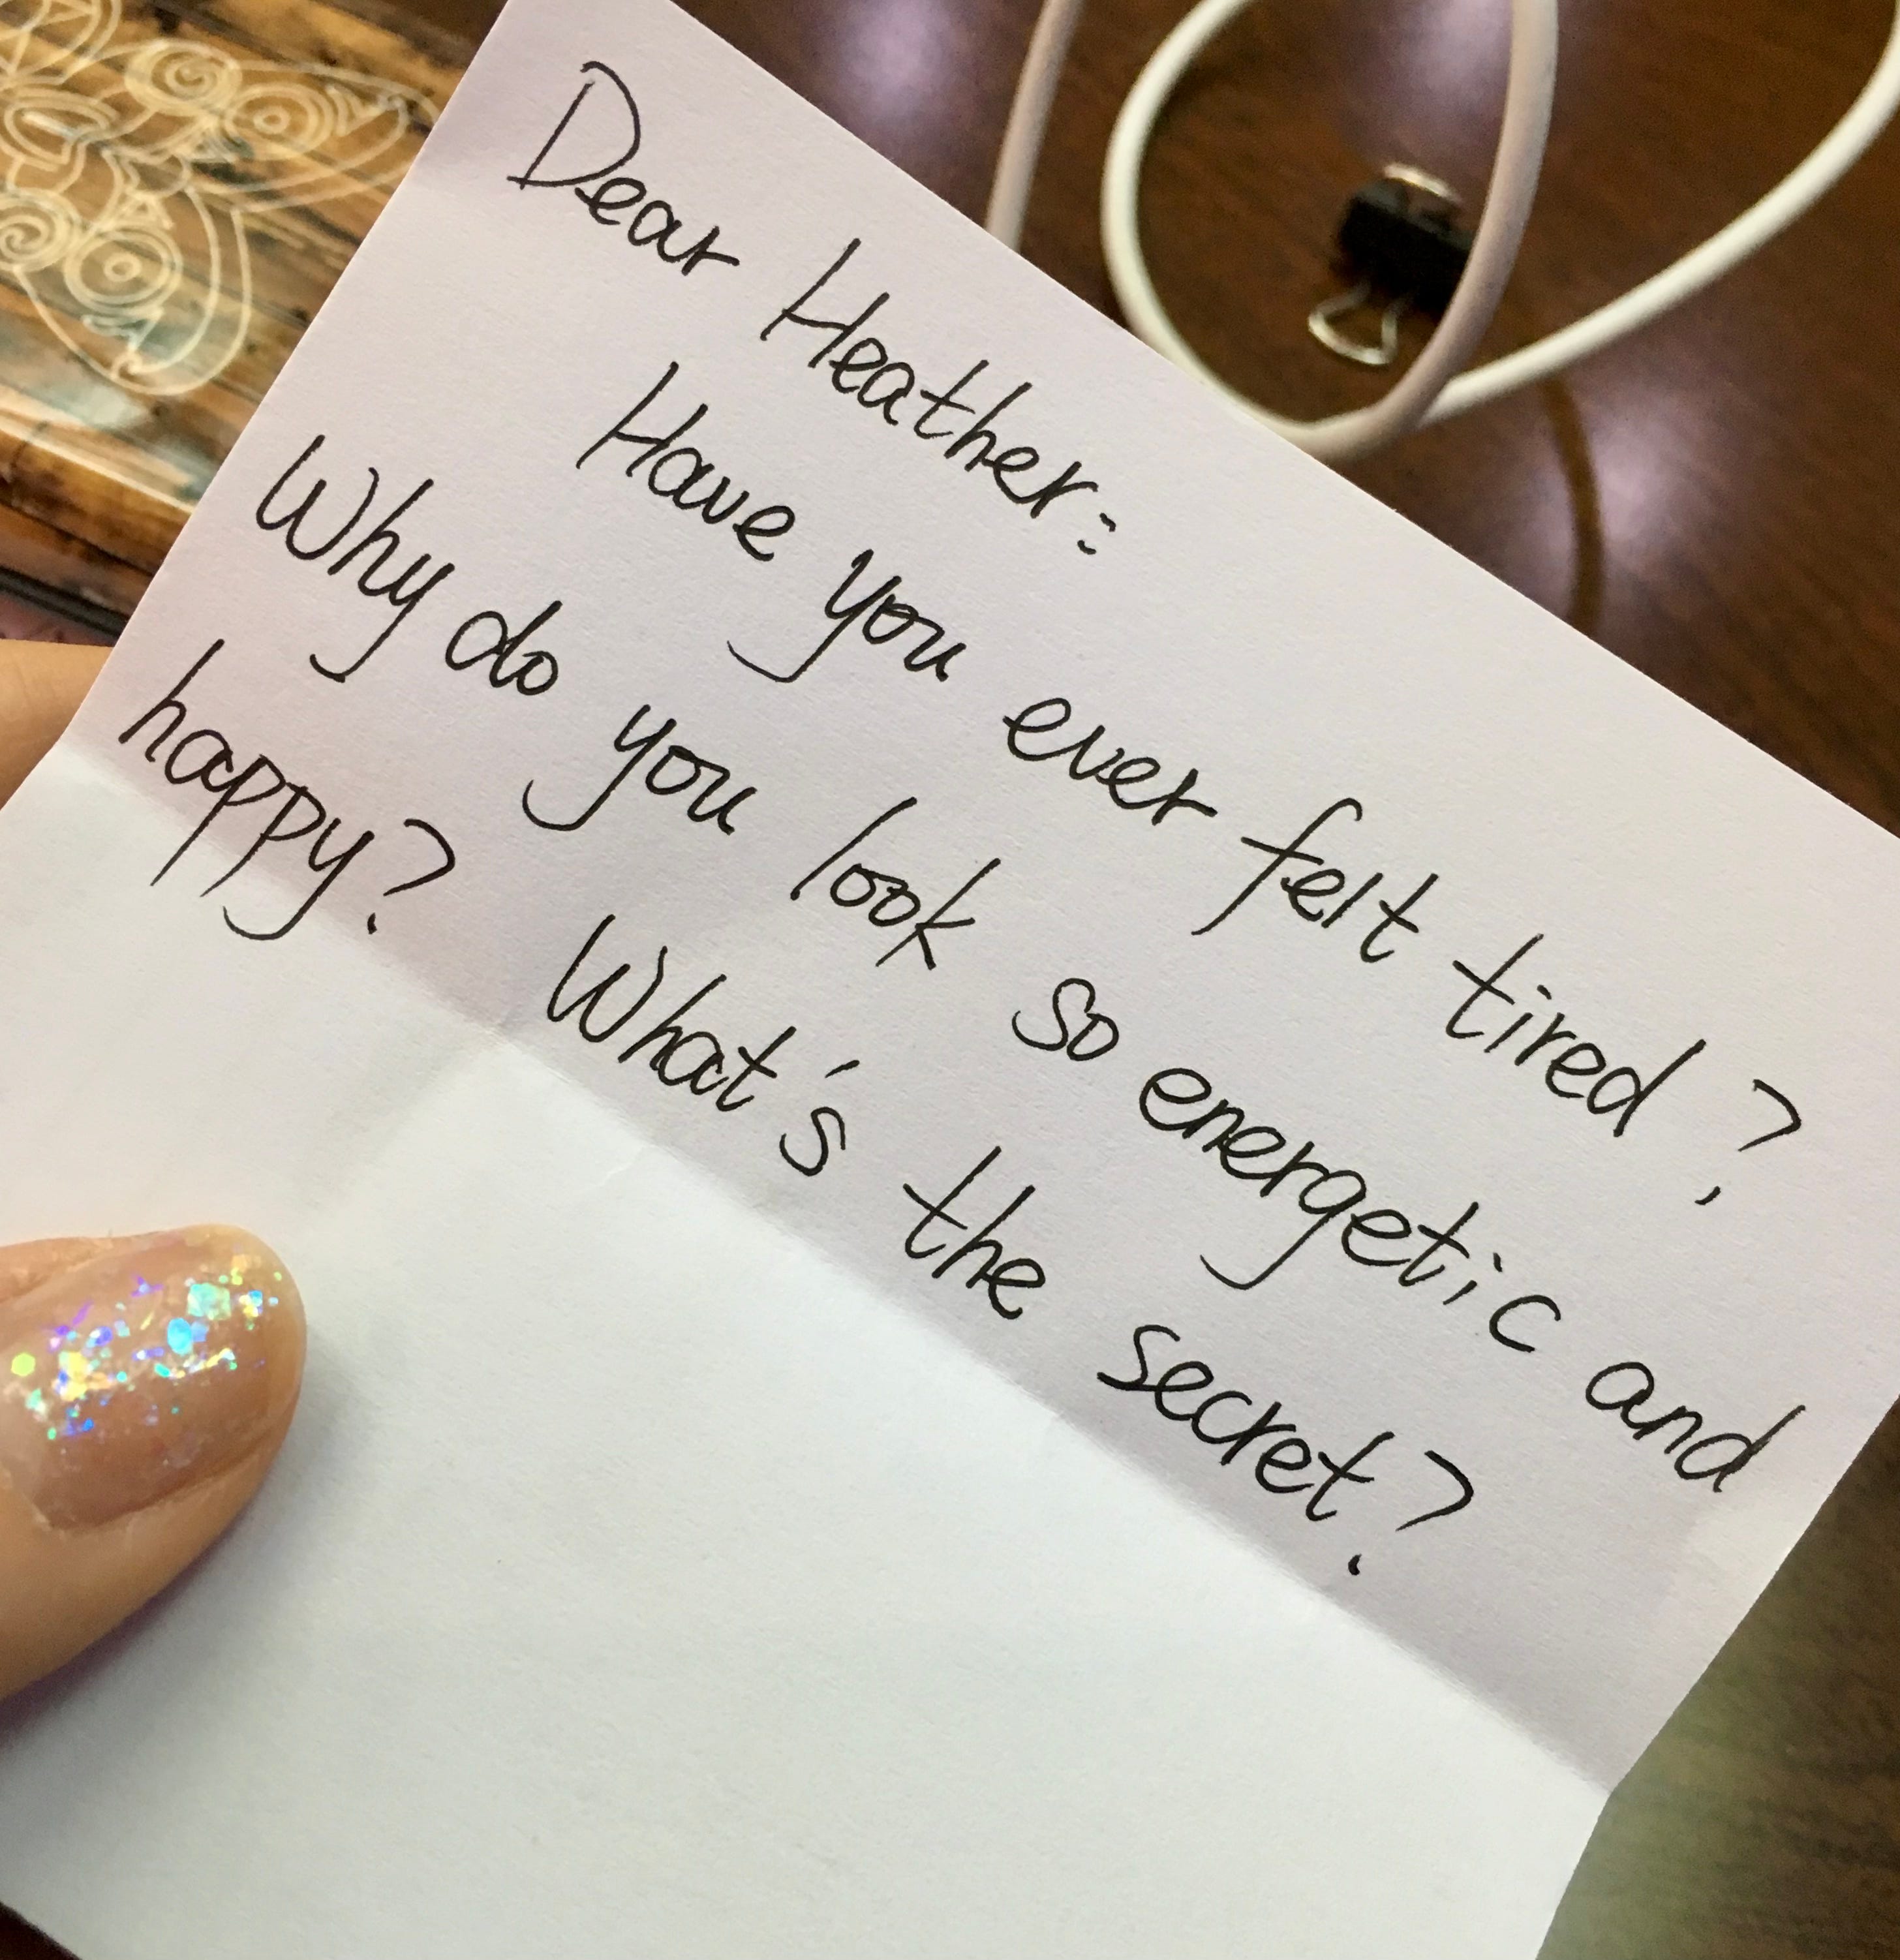 Dear Heather:
Have you ever felt tired?
Why do you look so energetic and
happy? What's the secret?